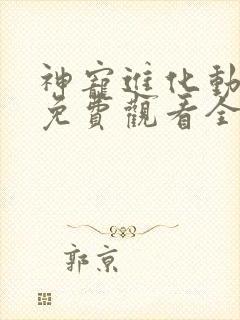 神寵進化動
免費觀看全
郭京